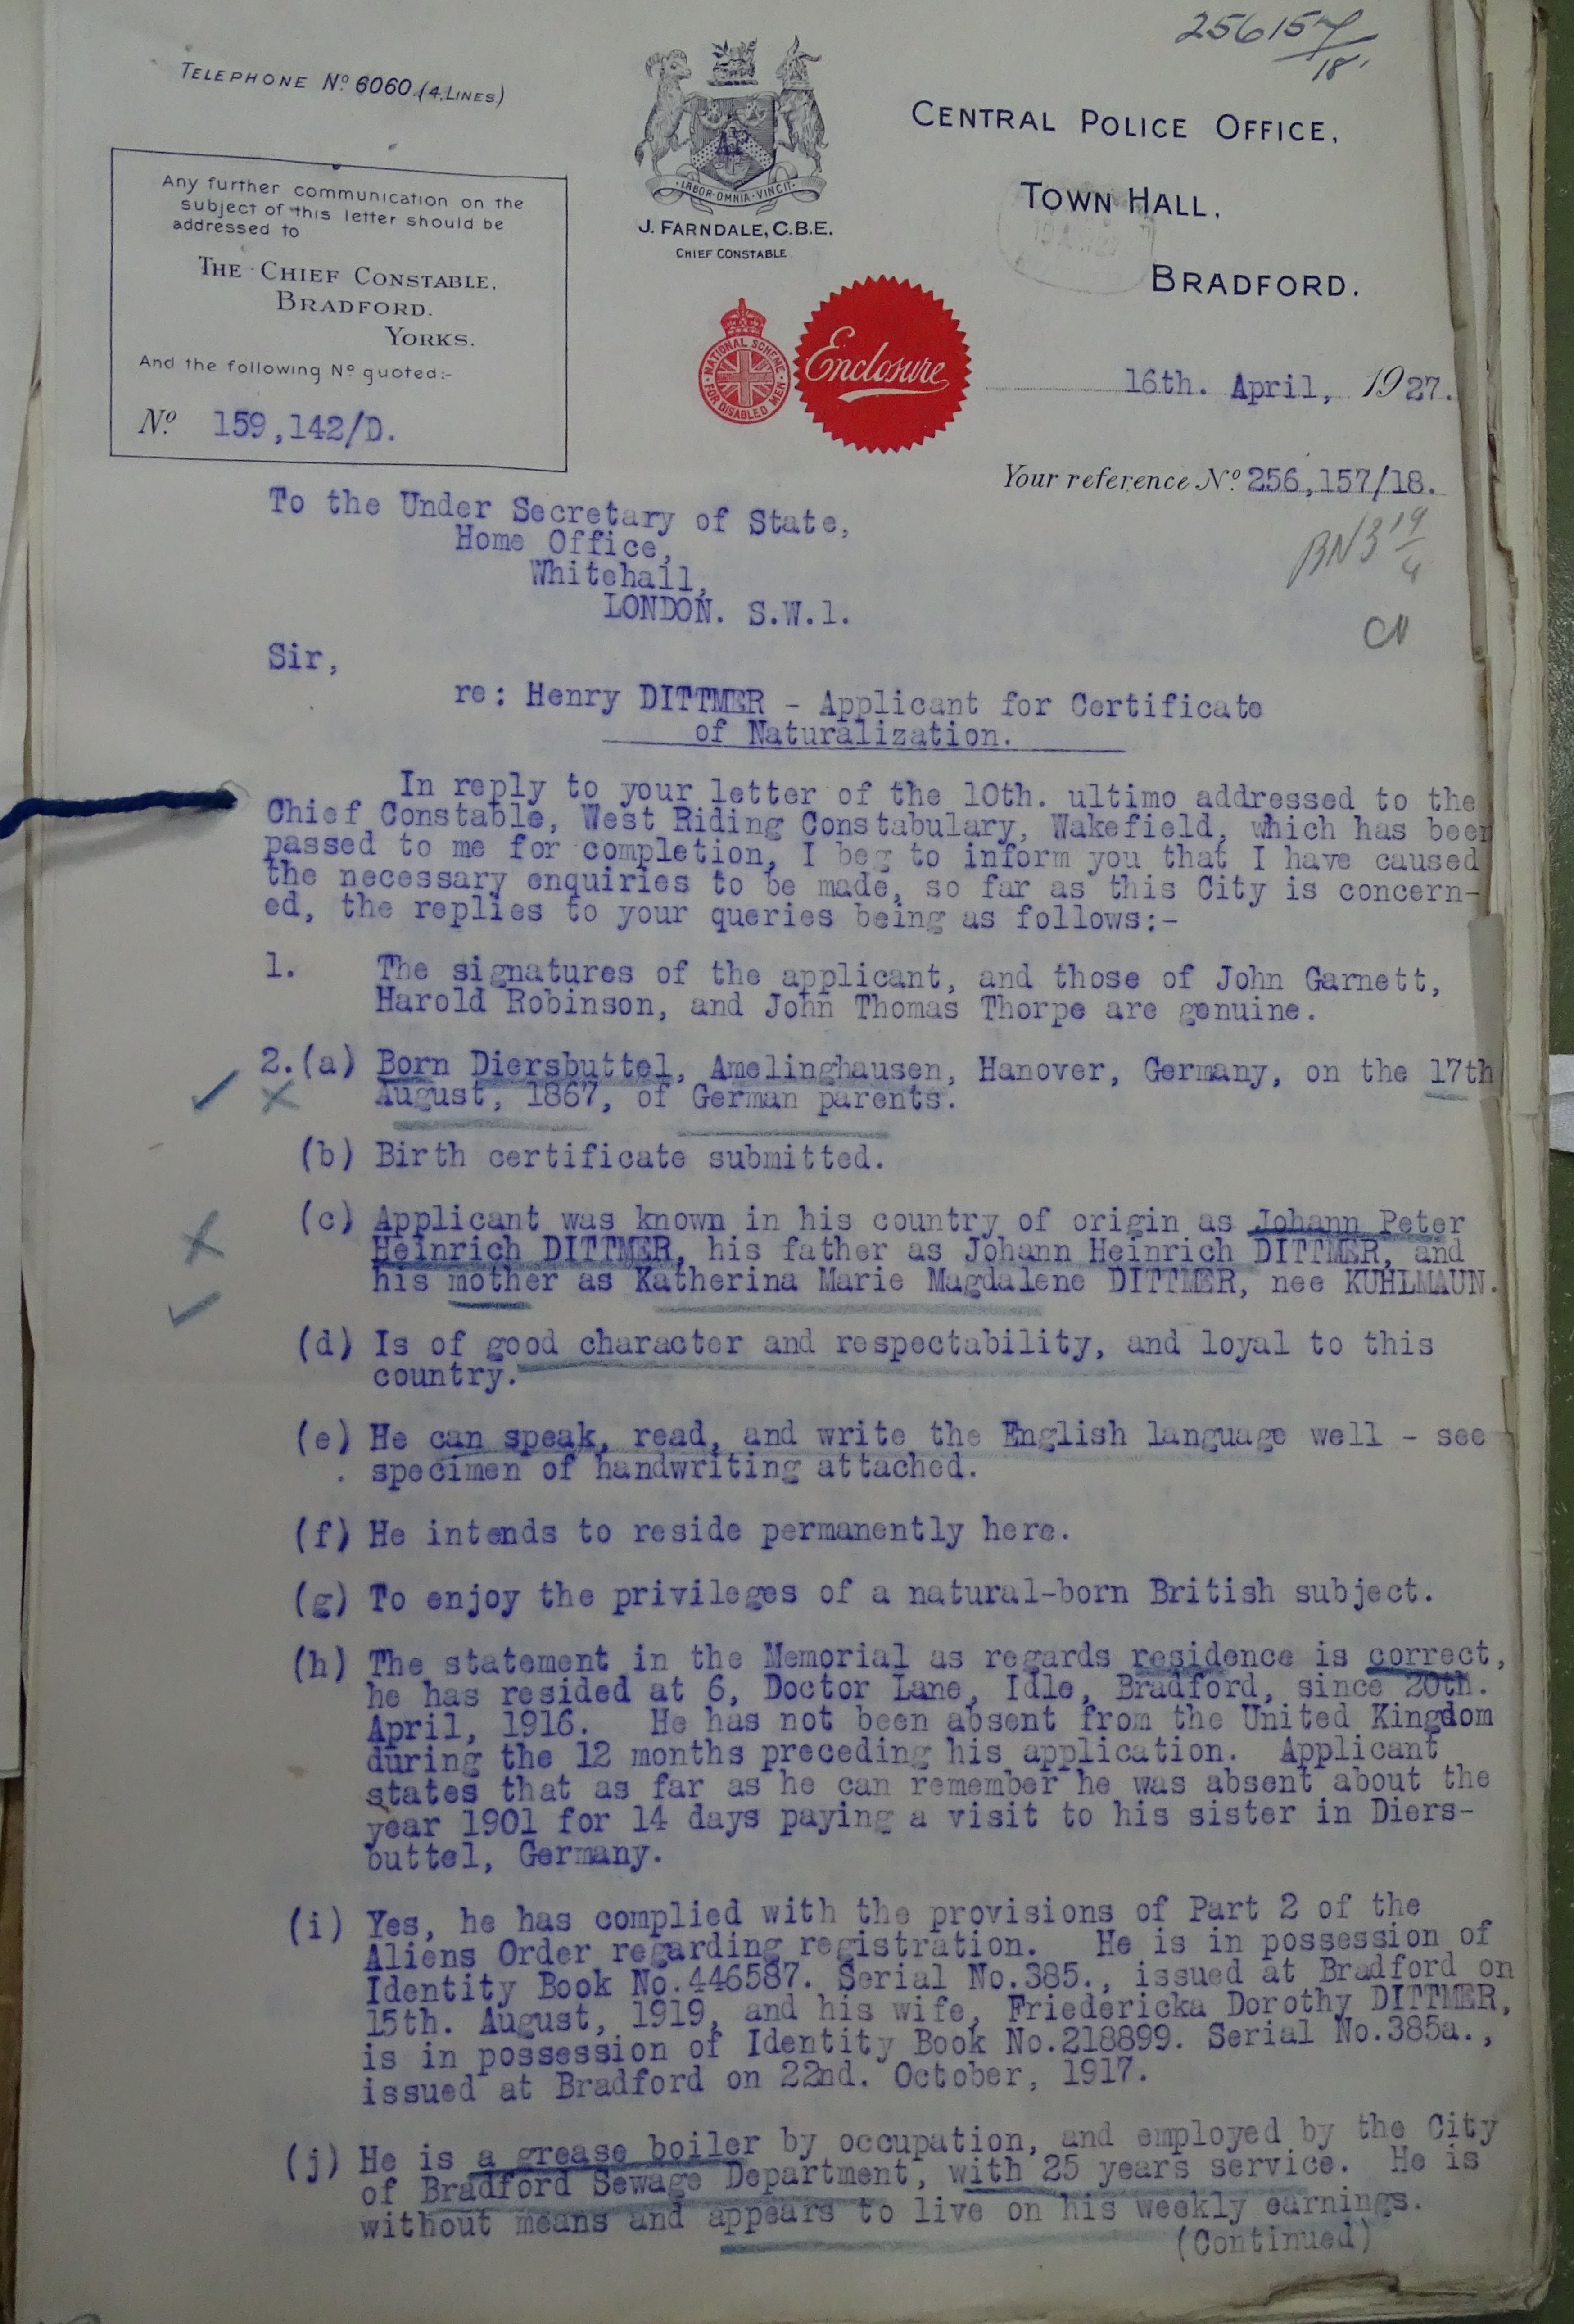 256157/18
TELEPHONE No. 6060 (4 LINES)
Any further communication on the
subject of this letter should be
addressed to
THE CHIEF CONSTABLE,
BRADFORD.
YORKS.
And the following No. quoted:-
No. 159,142/D.
LABOR OMNIA VINCIT
J. FARNDALE, C.B.E.
CHIEF CONSTABLE
CENTRAL POLICE OFFICE,
TOWN HALL,
BRADFORD.
NATIONAL SCHEME
FOR DISABLED MEN
Enclosure
16th. April, 1927.
Your reference No. 256,157/18.
To the Under Secretary of State,
Home Office,
Whitehall,
LONDON. S.W.1.
Sir,
re: Henry DITTMER - Applicant for Certificate
of Naturalization.
In reply to your letter of the 10th. ultimo addressed to the
Chief Constable, West Riding Constabulary, Wakefield, which has been
passed to me for completion, I beg to inform you that I have caused
the necessary enquiries to be made, so far as this City is concern-
ed, the replies to your queries being as follows:-
1. The signatures of the applicant, and those of John Garnett,
Harold Robinson, and John Thomas Thorpe are genuine.
2.(a) Born Diersbuttel, Amelinghausen, Hanover, Germany, on the 17th
August, 1867, of German parents.
(b) Birth certificate submitted.
(c) Applicant was known in his country of origin as Johann Peter
Heinrich DITTMER, his father as Johann Heinrich DITTMER, and
his mother as Katherina Marie Magdalene DITTMER, nee KUHLMAUN.
(d) Is of good character and respectability, and loyal to this
country.
(e) He can speak, read, and write the English language well - see
specimen of handwriting attached.
(f) He intends to reside permanently here.
(g) To enjoy the privileges of a natural-born British subject.
(h) The statement in the Memorial as regards residence is correct,
he has resided at 6, Doctor Lane, Idle, Bradford, since 20th.
April, 1916. He has not been absent from the United Kingdom
during the 12 months preceding his application. Applicant
states that as far as he can remember he was absent about the
year 1901 for 14 days paying a visit to his sister in Diers-
buttel, Germany.
(i) Yes, he has complied with the provisions of Part 2 of the
Aliens Order regarding registration. He is in possession of
Identity Book No.446587. Serial No.385., issued at Bradford on
15th. August, 1919, and his wife, Friedericka Dorothy DITTMER,
is in possession of Identity Book No.218899. Serial No.385a.,
issued at Bradford on 22nd. October, 1917.
(j) He is a grease boiler by occupation, and employed by the City
of Bradford Sewage Department, with 25 years service. He is
without means and appears to live on his weekly earnings.
(Continued)